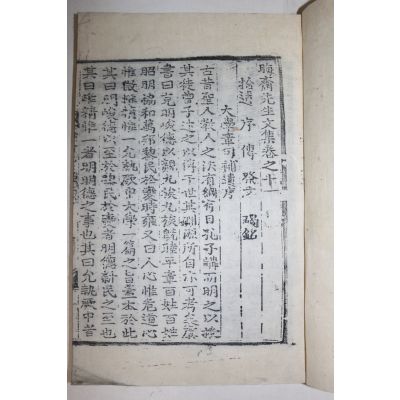 晦齋先生文集卷之十一
拾遺 序 傳 跋文 碣銘
大學章句補遺序
古昔聖人敎人之法有綱有目孔子誦而明之以授
其徒曾子述之以傳于世其淵源所自亦可考之虞
書曰克明峻德以親九族九族旣睦平章百姓百姓
昭明協和萬邦黎民於變時雍又曰人心惟危道心
惟微惟精惟一允執厥中大學一篇之旨蓋本於此
其曰明峻德以至於黎民於變者明德新民之至也
其曰惟精惟一者明明德之事也其曰允執厥中者